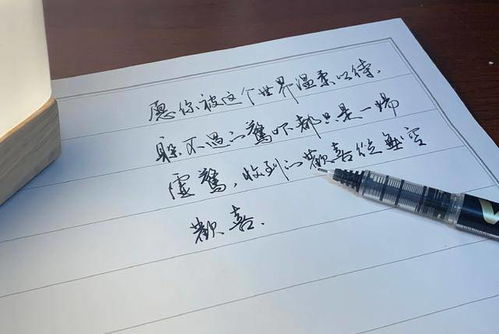 愿你被这个世界温柔以待,
躲不过的驚吓都只是一场
虚驚,收到的歡喜从無空
歡喜.
V